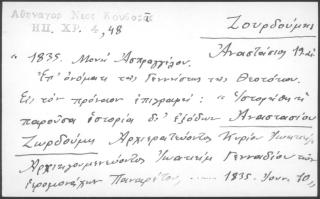 Αθηναγορ Νεος Κουβαρ
ΗΠ. ΧΡ. 4, 48
Ζουρδούμης
Αναστάσιος 19 αι
" 1835. Μονή Ασπραγγέλου.
Επ' ονόματι της Γεννήσεως της Θεοτόκου.
Εις τον πρόναον επιγραφή : "Ιστορήθη η
παρούσα ιστορία δι' εξόδων Αναστασίου
Ζωρδούμη Αρχιερατεύοντος Κυρίου Ιωακείμ
Αρχιηγουμενεύοντος Ιωακείμ Γενναδίου των
ιερομονάχων Παναρέτου, ...... 1835. Ιουν. 10,,